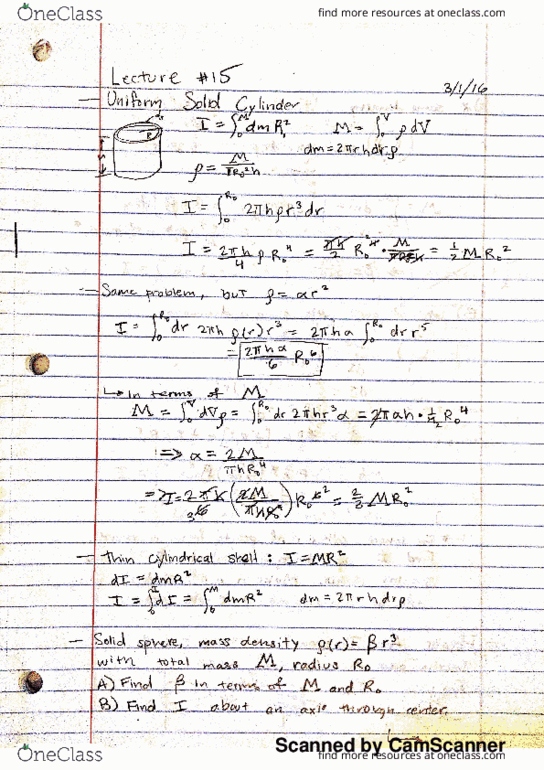 OneClass
find more resources at oneclass.com
Lecture #15
3/1/16
— Uniform Solid Cylinder
I = ∫₀ᴹ dm R² M = ∫₀ⱽ ρ dV
dm = 2πrhdrρ
ρ = M/(πR₀²h)
R
h
I = ∫₀^R₀ 2πhρr³dr
I = 2πh/4 ρ R₀⁴ = πh/2 R₀⁴ · M/(πR₀²h) = 1/2 M R₀²
— Same problem, but ρ = αr²
I = ∫₀^R₀ dr 2πh ρ(r) r³ = 2πhα ∫₀^R₀ dr r⁵
= 2πhα/6 R₀⁶
↳ In terms of M
M = ∫₀ⱽ dVρ = ∫₀^R₀ dr 2πhr³α = 2παh · 1/4 R₀⁴
⇒ α = 2M/(πhR₀⁴)
⇒ I = 2πh/6 (2M/(πhR₀⁴)) R₀⁶ = 2/3 MR₀²
— Thin cylindrical shell: I = MR²
dI = dmR²
I = ∫₀ᴵ dI = ∫₀ᴹ dmR² dm = 2πrhdrρ
— Solid sphere, mass density ρ(r) = βr³
with total mass M, radius R₀
A) Find β in terms of M and R₀
B) Find I about an axis through center.
Scanned by CamScanner
OneClass
find more resources at oneclass.com